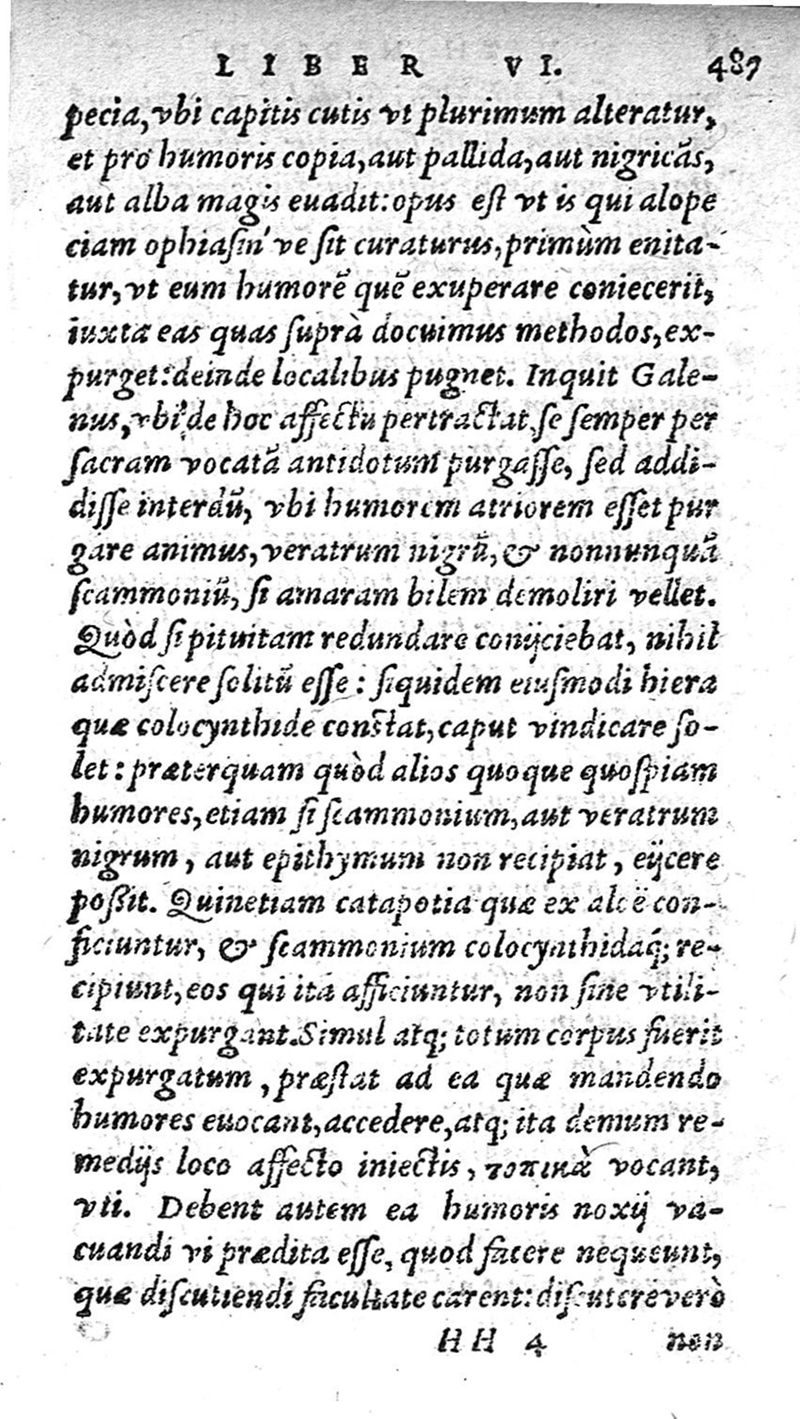 LIBER VI. 487
pecia, vbi capitis cutis vt plurimum alteratur,
et pro humoris copia, aut pallida, aut nigricãs,
aut alba magis euadit: opus est vt is qui alope
ciam ophiasin' ve sit curaturus, primùm enita-
tur, vt eum humorẽ quẽ exuperare coniecerit,
iuxta eas quas suprà docuimus methodos, ex-
purget: deinde localibus pugnet. Inquit Gale-
nus, vbi de hoc affectu pertractat, se semper per
sacram vocatã antidotum purgasse, sed addi-
disse interdũ, vbi humorem atriorem esset pur
gare animus, veratrum nigrũ, & nonnunquã
scammoniũ, si amaram bilem demoliri vellet.
Quòd si pituitam redundare conijciebat, nihil
admiscere solitũ esse: siquidem eiusmodi hiera
quæ colocynthide constat, caput vindicare so-
let: præterquam quòd alios quoque quospiam
humores, etiam si scammonium, aut veratrum
nigrum, aut epithymum non recipiat, eijcere
possit. Quinetiam catapotia quæ ex aloë con-
ficiuntur, & scammonium colocynthidaq́; re-
cipiunt, eos qui ita afficiuntur, non sine vtili-
tate expurgant. Simul atq; totum corpus fuerit
expurgatum, præstat ad ea quæ mandendo
humores euocant, accedere, atq; ita demum re-
medijs loco affecto iniectis, τοπικὰ vocant,
vti. Debent autem ea humoris noxij va-
cuandi vi prædita esse, quod facere nequeunt,
quæ discutiendi facultate carent: discutere verò
HH 4 non